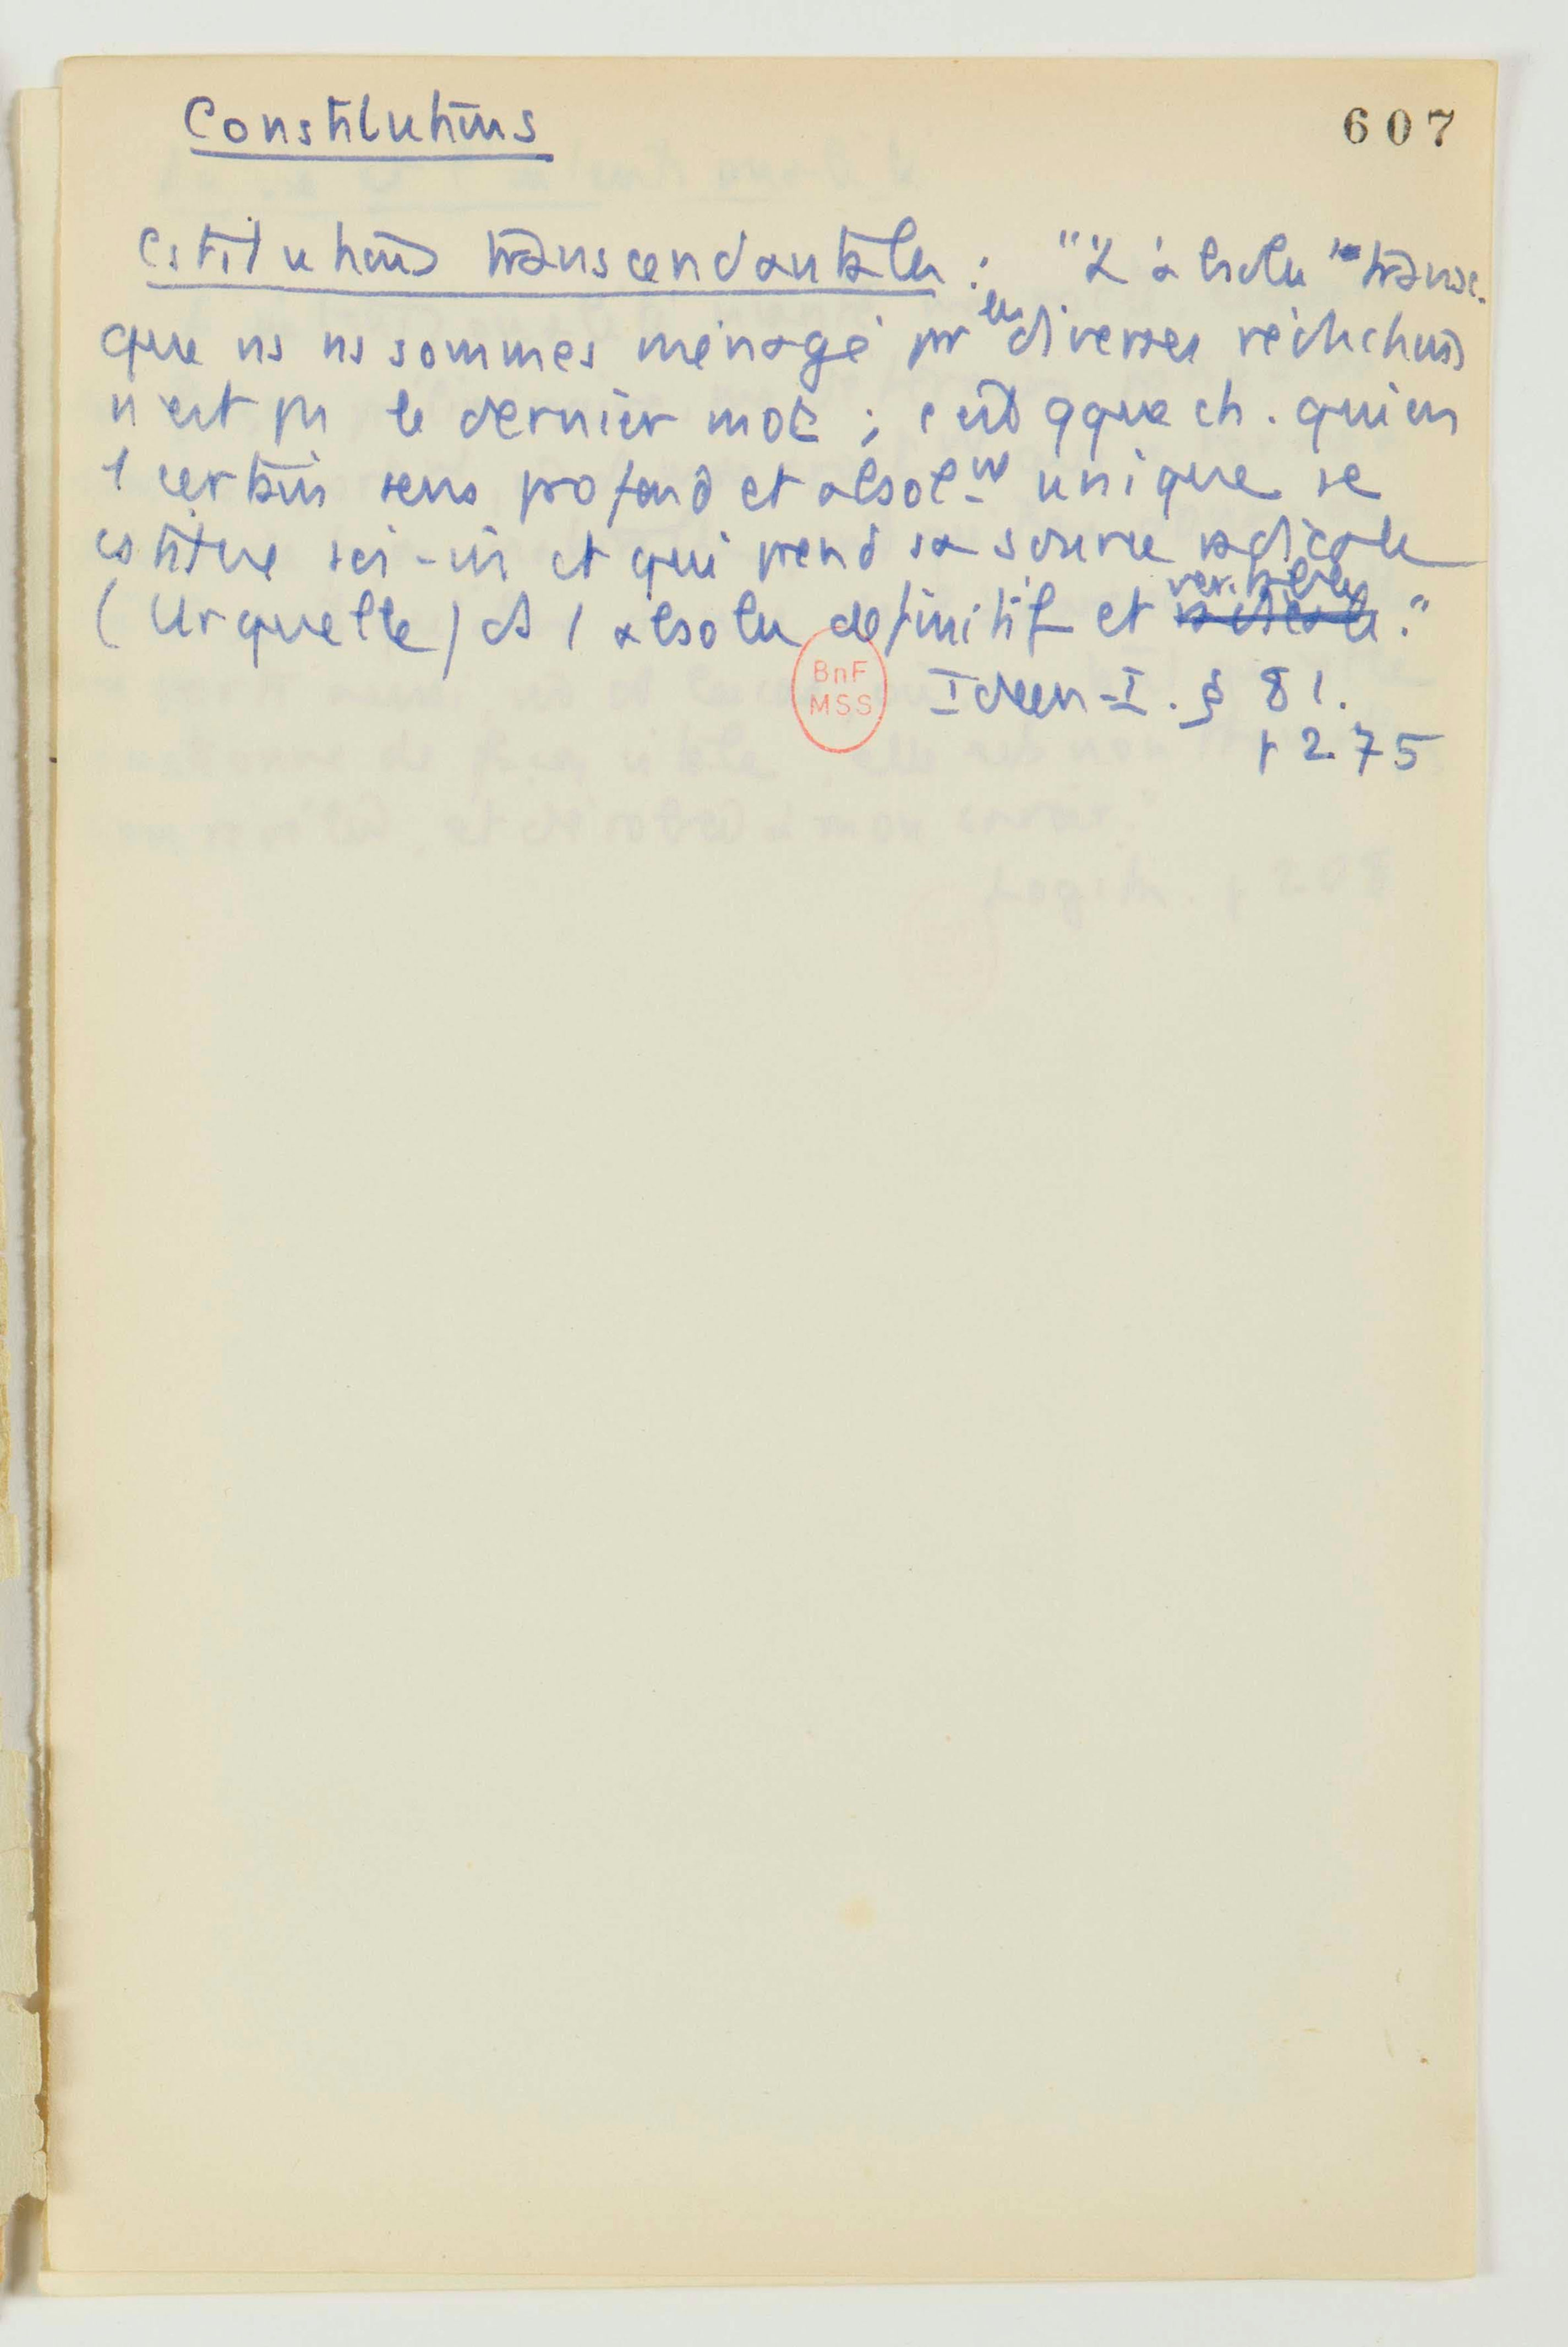 Constitutions
607
cstitutions transcendantales : "L'absolu transc.
que ns ns sommes ménagé pr les diverses réductions
n'est pas le dernier mot ; c'est qque ch. qui en
1 certain sens profond et absolmt unique se
cstitue soi-m et qui prend sa source radicale
(Urquelle) ds 1 absolu définitif et véritable."
BnF
MSS
Ideen-I. § 81.
p 275